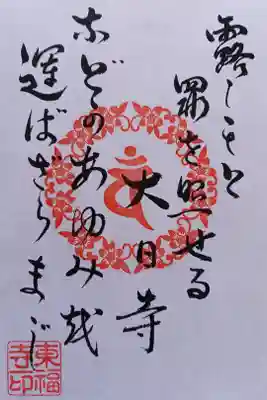 露しもと
罪を照せる
大日寺
などのあゆみ越
運ばざらまじ
東福寺印